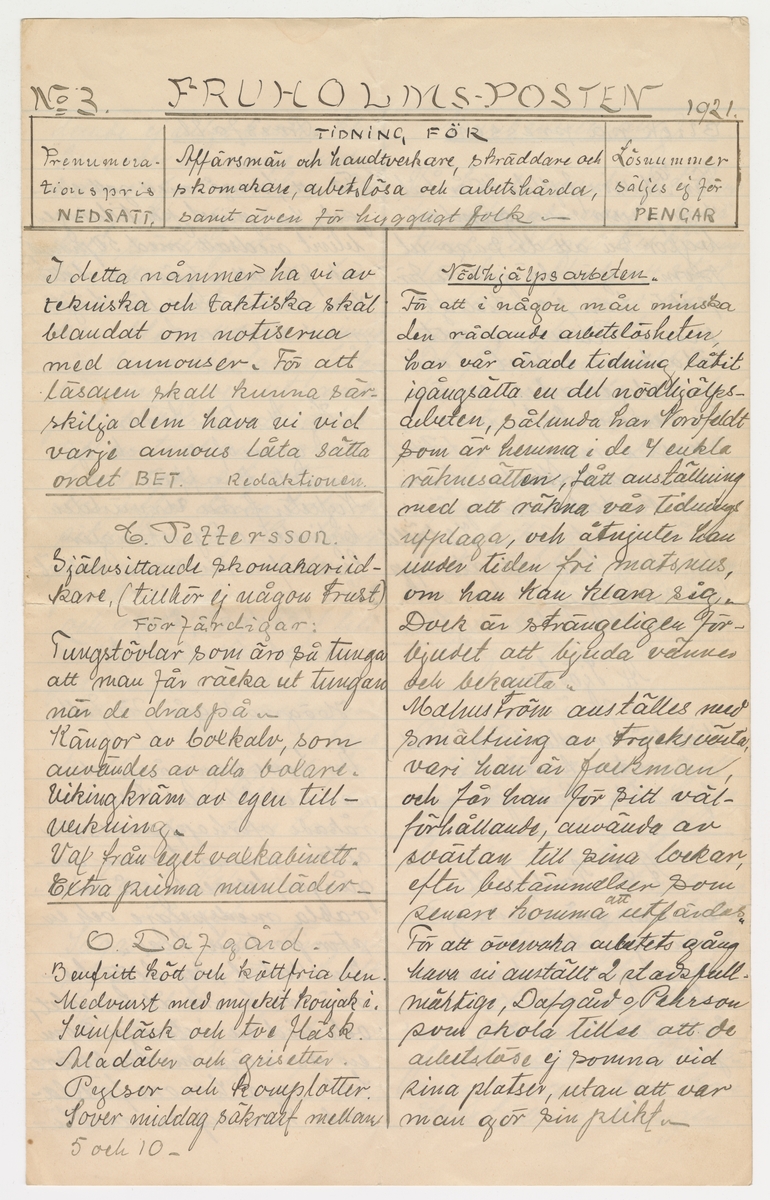 No 3. FRUHOLMS-POSTEN 1921.
TIDNING FÖR
Prenumera-
tionspris
NEDSATT.
Affärsmän och handtverkare, skräddare och
skomakare, arbetslösa och arbetshårda,
samt även för hyggligt folk –
Lösnummer
säljes ej för
PENGAR
I detta nåmmer ha vi av
tekniska och taktiska skäl
blandat om notiserna
med annonser. För att
läsaren skall kunna sär-
skilja dem hava vi vid
varje annons låta sätta
ordet BET. Redaktionen.
C. Pettersson.
Självsittande skomakeriid-
kare, (tillhör ej någon Trust)
Förfärdigar:
Tungstövlar som äro så tunga
att man får räcka ut tungan
när de dras på –
Kängor av bolkalv, som
användes av alla bolare.
Vikingkräm av egen till-
verkning.
Vax från eget vaxkabinett.
Extra prima munläder –
O. Dafgård.
Benfritt kött och köttfria ben.
Medvurst med mycket konjak i.
Svinfläsk och tve fläsk.
Aladåber och grisetter.
Pylsor och komplotter.
Sover middag säkrast mellan
5 och 10 –
Nödhjälpsarbeten.
För att i någon mån minska
den rådande arbetslösheten,
har vår ärade tidning låtit
igångsätta en del nödhjälps-
arbeten, sålunda har Nordfeldt
som är hemma i de 4 enkla
räknesätten, fått anställning
med att räkna vår tidnings
upplaga, och åtnjuter han
under tiden fri matsnus,
om han kan klara sig.
Dock är strängeligen för-
bjudet att bjuda vänner
och bekanta.
Malmström anställes med
smältning av Trycksvärta,
vari han är fackman,
och får han för sitt väl-
förhållande, använda av
svärtan till sina lockar,
efter bestämmelser som
senare komma att utfärdas.
För att övervaka arbetets gång
hava vi anställt 2 stadsfull-
mäktige, Dafgård o Pehrson
som skola tillse att de
arbetslöse ej somna vid
sina platser, utan att var
man gör sin plikt –